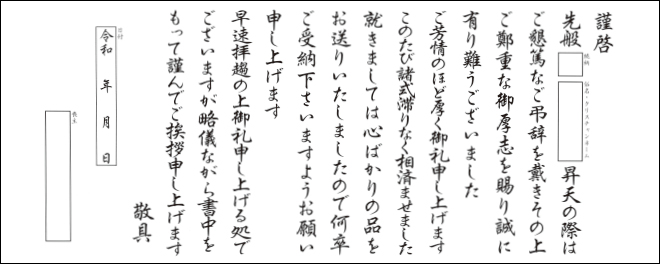 謹啓
先般 続柄 俗名・クリスチャンネーム 昇天の際は
ご懇篤なご弔辞を戴きその上
ご鄭重な御厚志を賜り誠に
有り難うございました
ご芳情のほど厚く御礼申し上げます
このたび諸式滞りなく相済ませました
就きましては心ばかりの品を
お送りいたしましたので何卒
ご受納下さいますようお願い
申し上げます
早速拝趨の上御礼申し上げる処で
ございますが略儀ながら書中を
もって謹んでご挨拶申し上げます
敬具
日付
令和 年 月 日
喪主